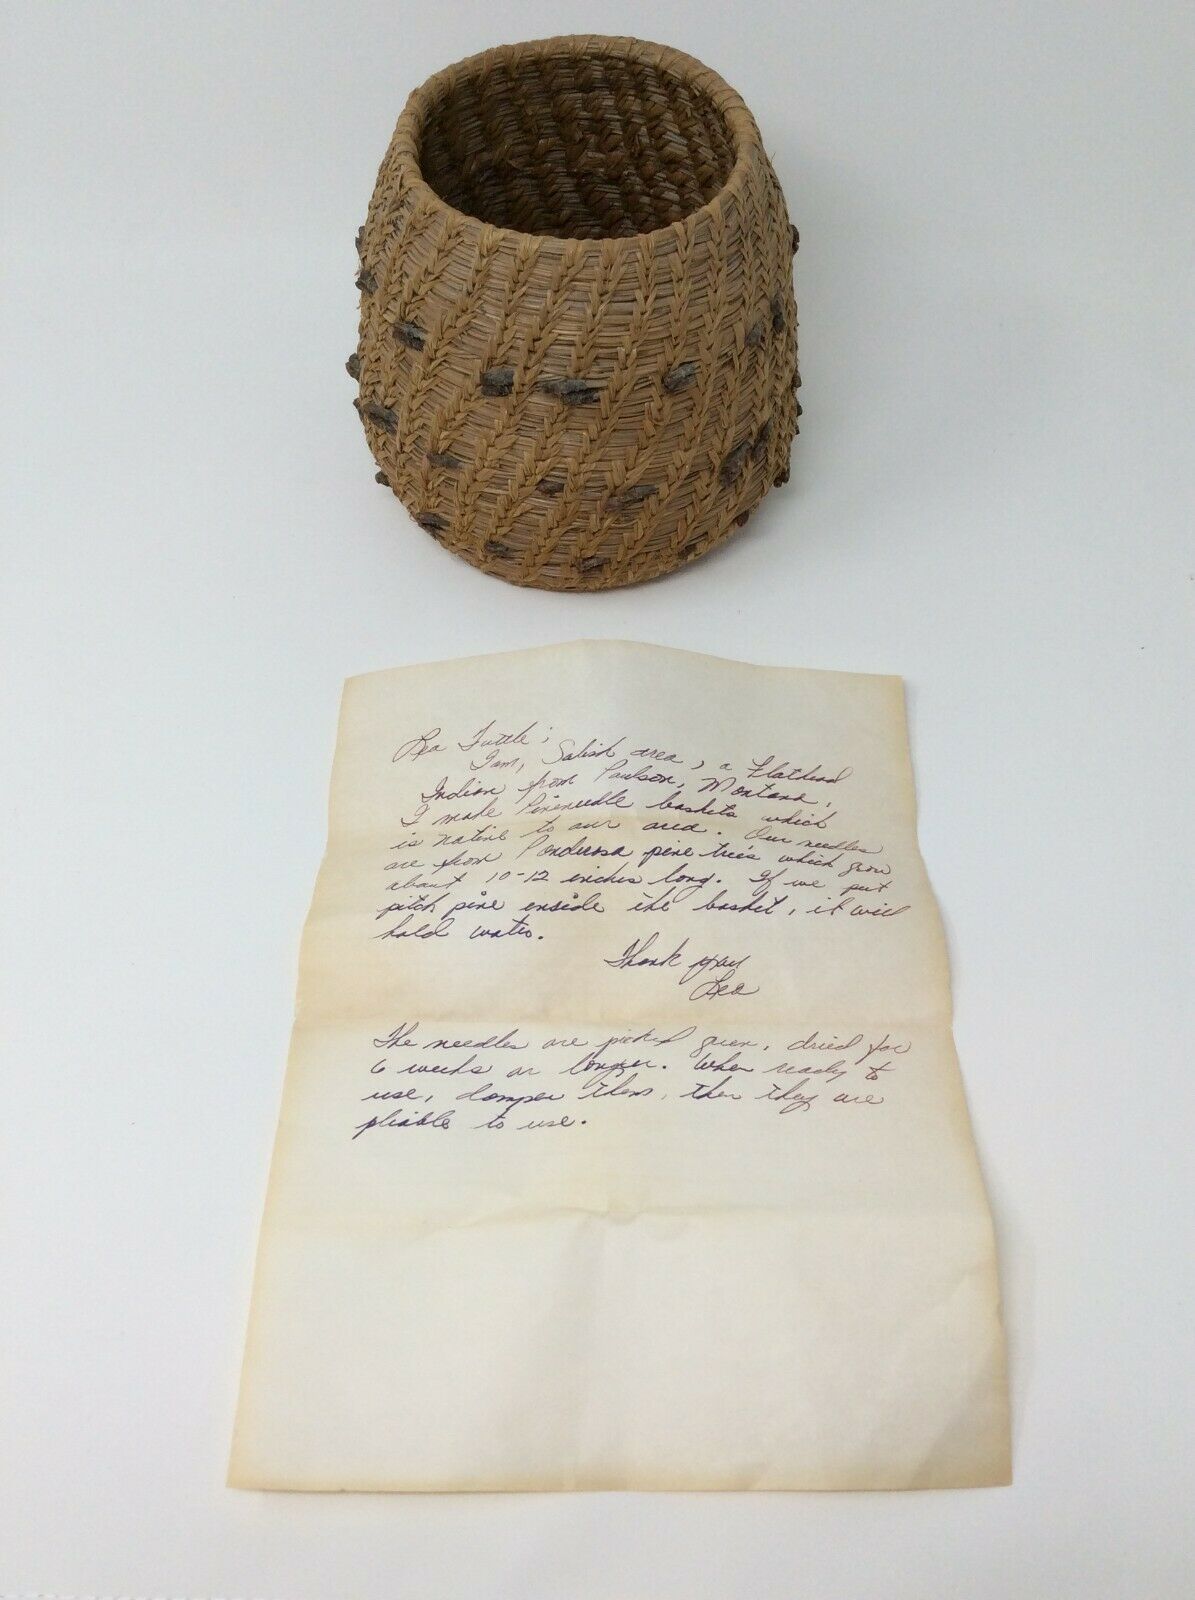 Lea Tuttle;
I am, Salish area, a Flathead
Indian from Paulson, Montana.
I make Pineneedle baskets which
is native to our area. Our needles
are from Ponderosa pine trees which grow
about 10-12 inches long. If we put
pitch pine inside the basket, it will
hold water.
Thank you
Lea
The needles are picked green, dried for
6 weeks or longer. When ready to
use, dampen them, then they are
pliable to use.